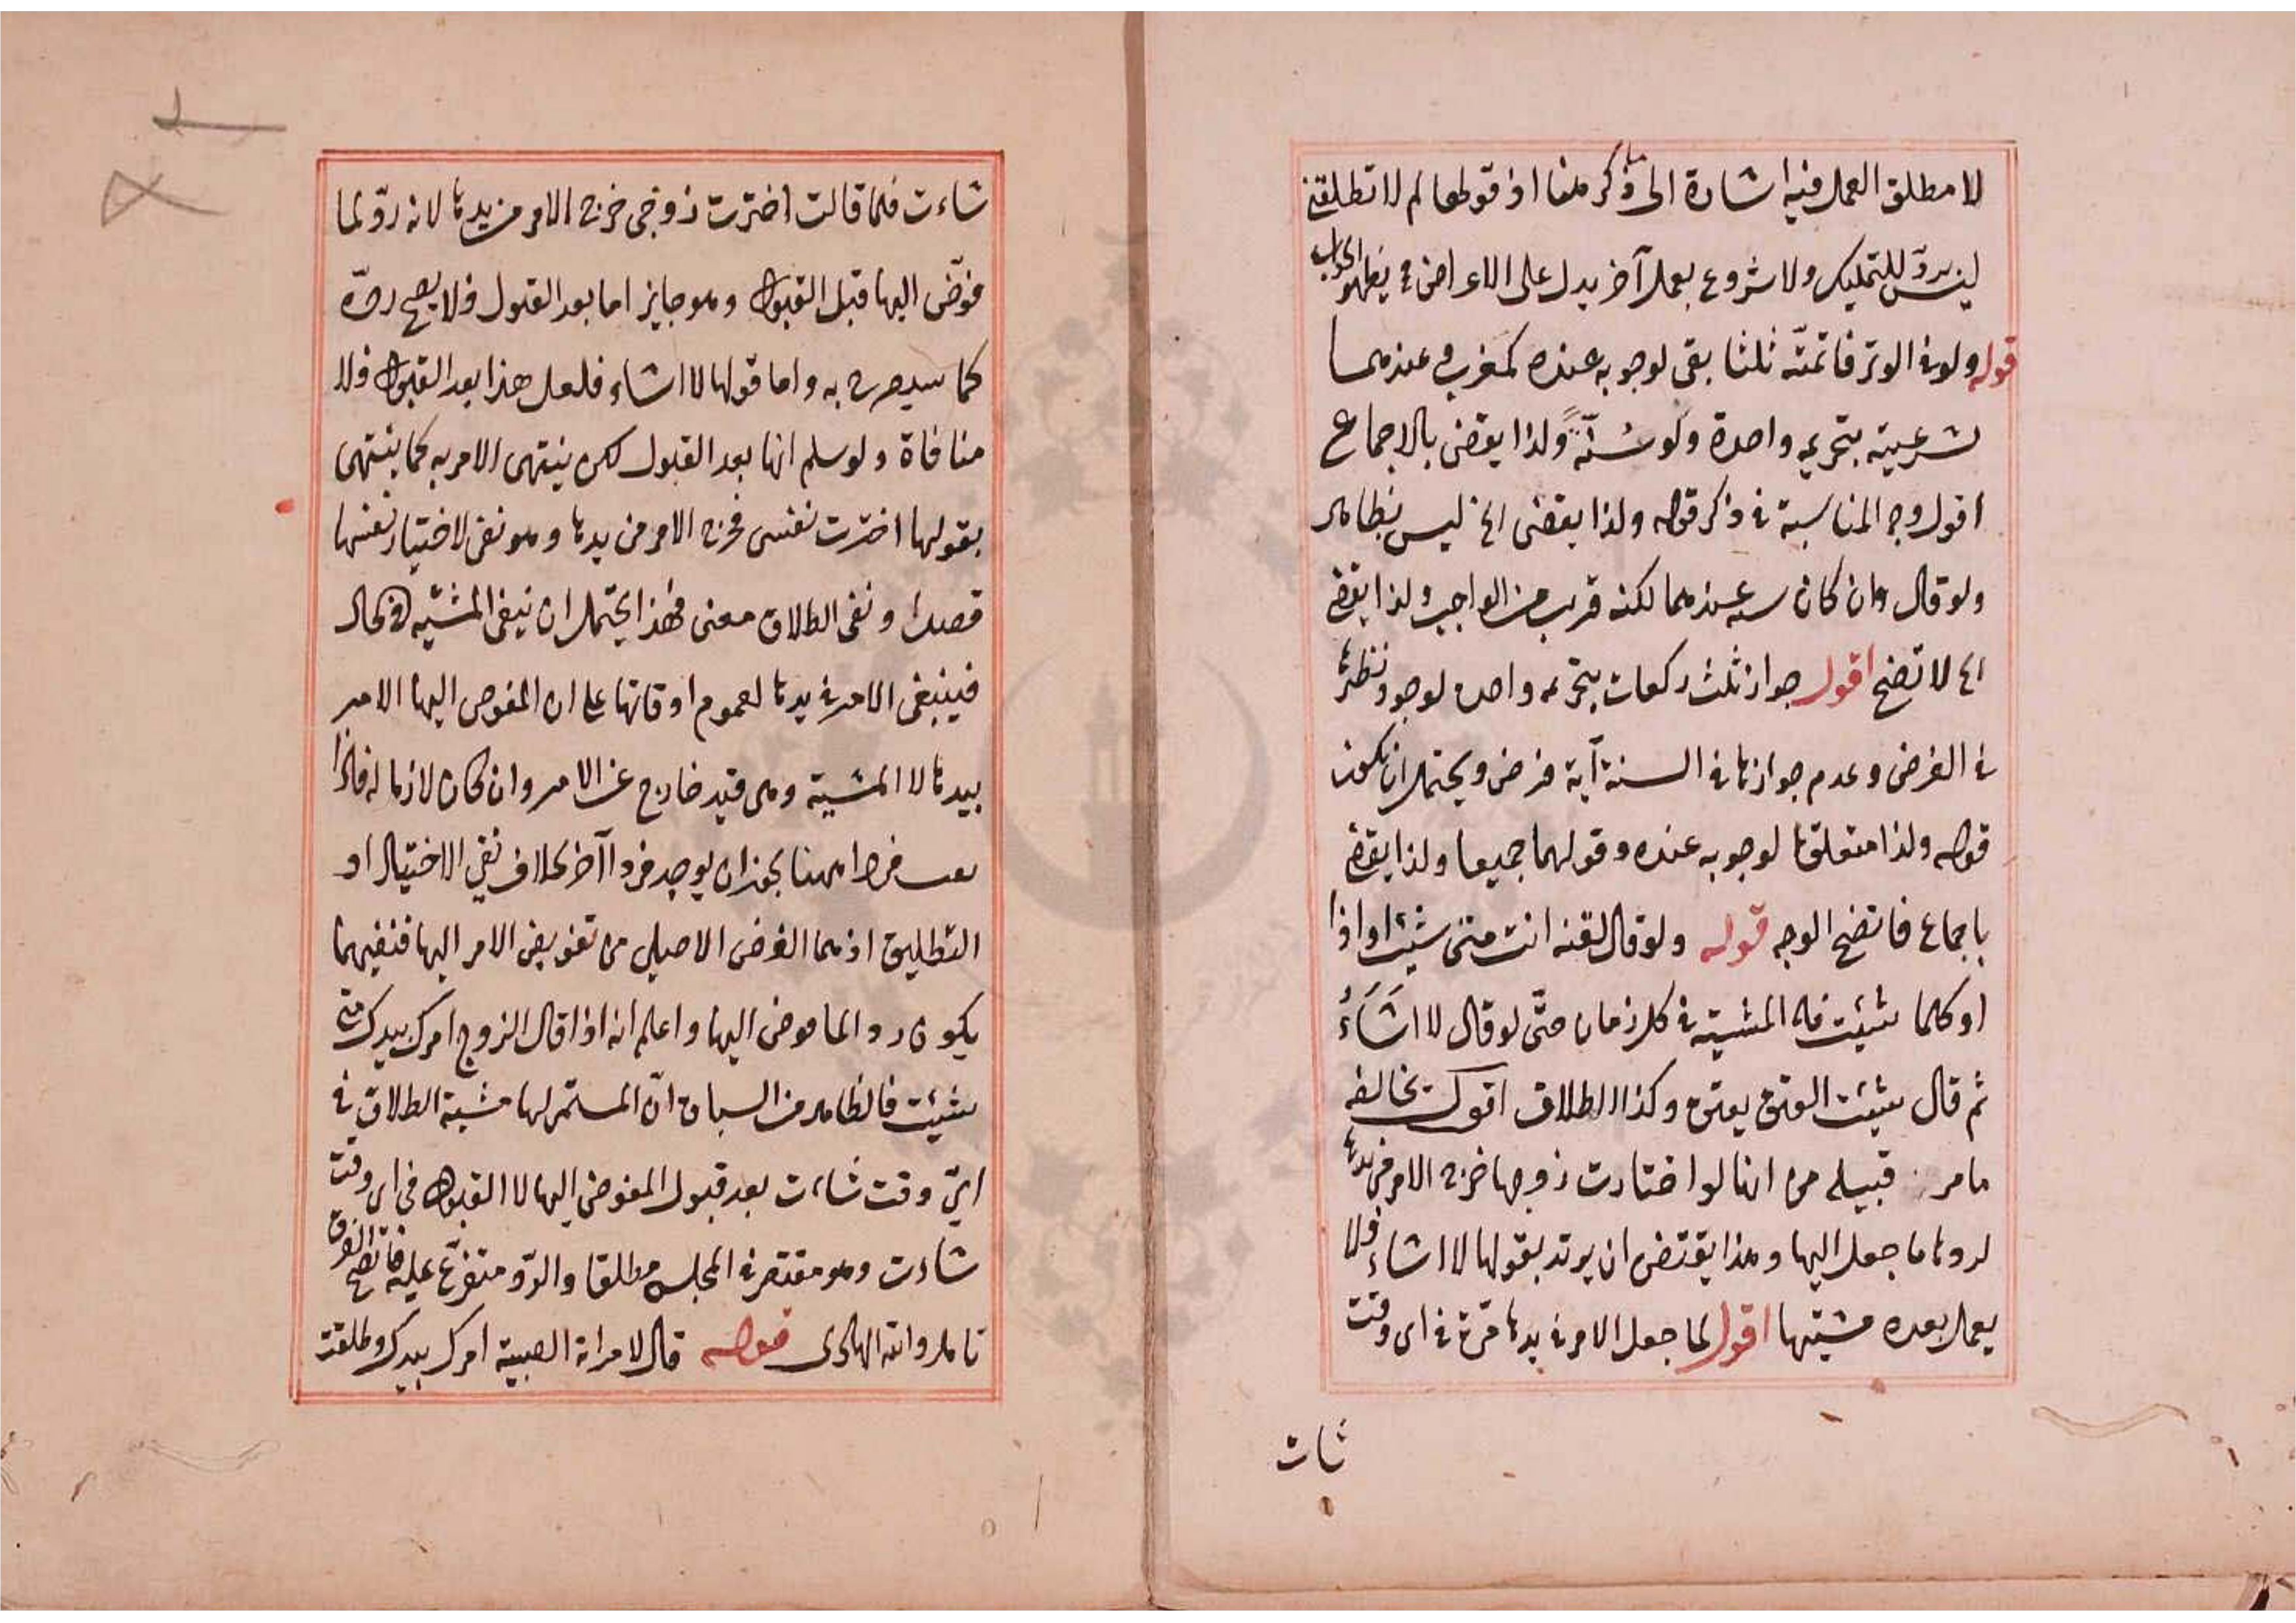 لا مطلق العمل ففيه اشارة الى ما ذكر منها اذ قولها لم لا تطلقنى
ليس بردّ للتمليك ولا شروع بعمل آخر يدل على الاعراض فيظهر الجواب
قوله ولو فى الوتر فاتمته ثلثا بقى لوجوبه عنده كمغرب وعندهما
شرعيته بتحريمه واحدة ولو سنّةً ولذا يقضى بالاجماع
اقول وجه المناسبة فى ذكر قوله ولذا يقضى الخ ليس بظاهر
ولو قال وان كان سنه عندهما لكنه قريب من الواجب ولذا يقضى
الخ لا تضح اقول جواز ثلث ركعات بتحريمه واحده لوجود نظيرها
فى الفرض وعدم جوازها فى السنة آية فرض ويحتمل ان يكون
قوله ولذا متعلقا لوجوبه عنده وقولهما جميعا ولذا يقضى
باجماع فاتضح الوجه قوله ولو قال لقنه انت متى شئت او اذا
او كلما شئت فله المشية فى كل زمان حتّى لو قال لا اشَاَءُ
ثم قال شئت العتق يعتق وكذا الطلاق اقول يخالفه
ما مر قبيله من انها لو اختارت زوجها خرج الامر من يدها
لردها ما جعل اليها وهذا يقتضى ان يرتد بقولها لا اشاء فلا
يعمل بعده مشيتها اقول لما جعل الامر فى يدها مرة فى اى وقت
شات
شاءت فلما قالت اخترت زوجى خرج الامر من يدها لانه ردّ لما
فوّض اليها قبل القبول وهو جايز اما بعد القبول فلا يصح ردّه
كما سيصرح به واما قولها لا اشاء فلعل هذا بعد القبول فلا
منافاة ولو سلم انها بعد القبول لكن ينتهى الامر به كما ينتهى
بقولها اخترت نفسى فخرج الامر من يدها وهو نفى لاختيار نفسها
قصدا ونفى الطلاق معنى فهذا يحتمل ان ينفى المشيه فى الحال
فينبغى الامر فى يدها لعموم اوقاتها على ان المفوض اليها الامر
بيدها لا المشية وهى قيد خارج عن الامر وان كان لازما له فاذا
فردا ههنا يجوز ان يوجد فردا آخر بخلاف نفى الاختيار او
التطليق اذ هما الغرض الاصيلى من تفويض الامر اليها فنفيهما
يكون ردا لما فوض اليها واعلم انه اذا قال الزوج امرك بيدك متى
شئت فالظاهر من السياق انّ المستمر لها مشية الطلاق فى
ايّ وقت شاءت بعد قبول المفوض اليها لا القبول فى اى وقت
شاءت وهو مقتصر فى المجلس مطلقا والردّ متفرّع عليه فاتضح الفرق
تامل والله الهادى قوله قال لامراته الصبية امرك بيدك وطلقت